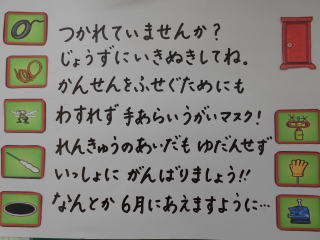 つかれていませんか？
じょうずにいきぬきしてね。
かんせんをふせぐためにも
わすれず手あらいうがいマスク！
れんきゅうのあいだも ゆだんせず
いっしょに がんばりましょう!!
なんとか 6月にあえますように…